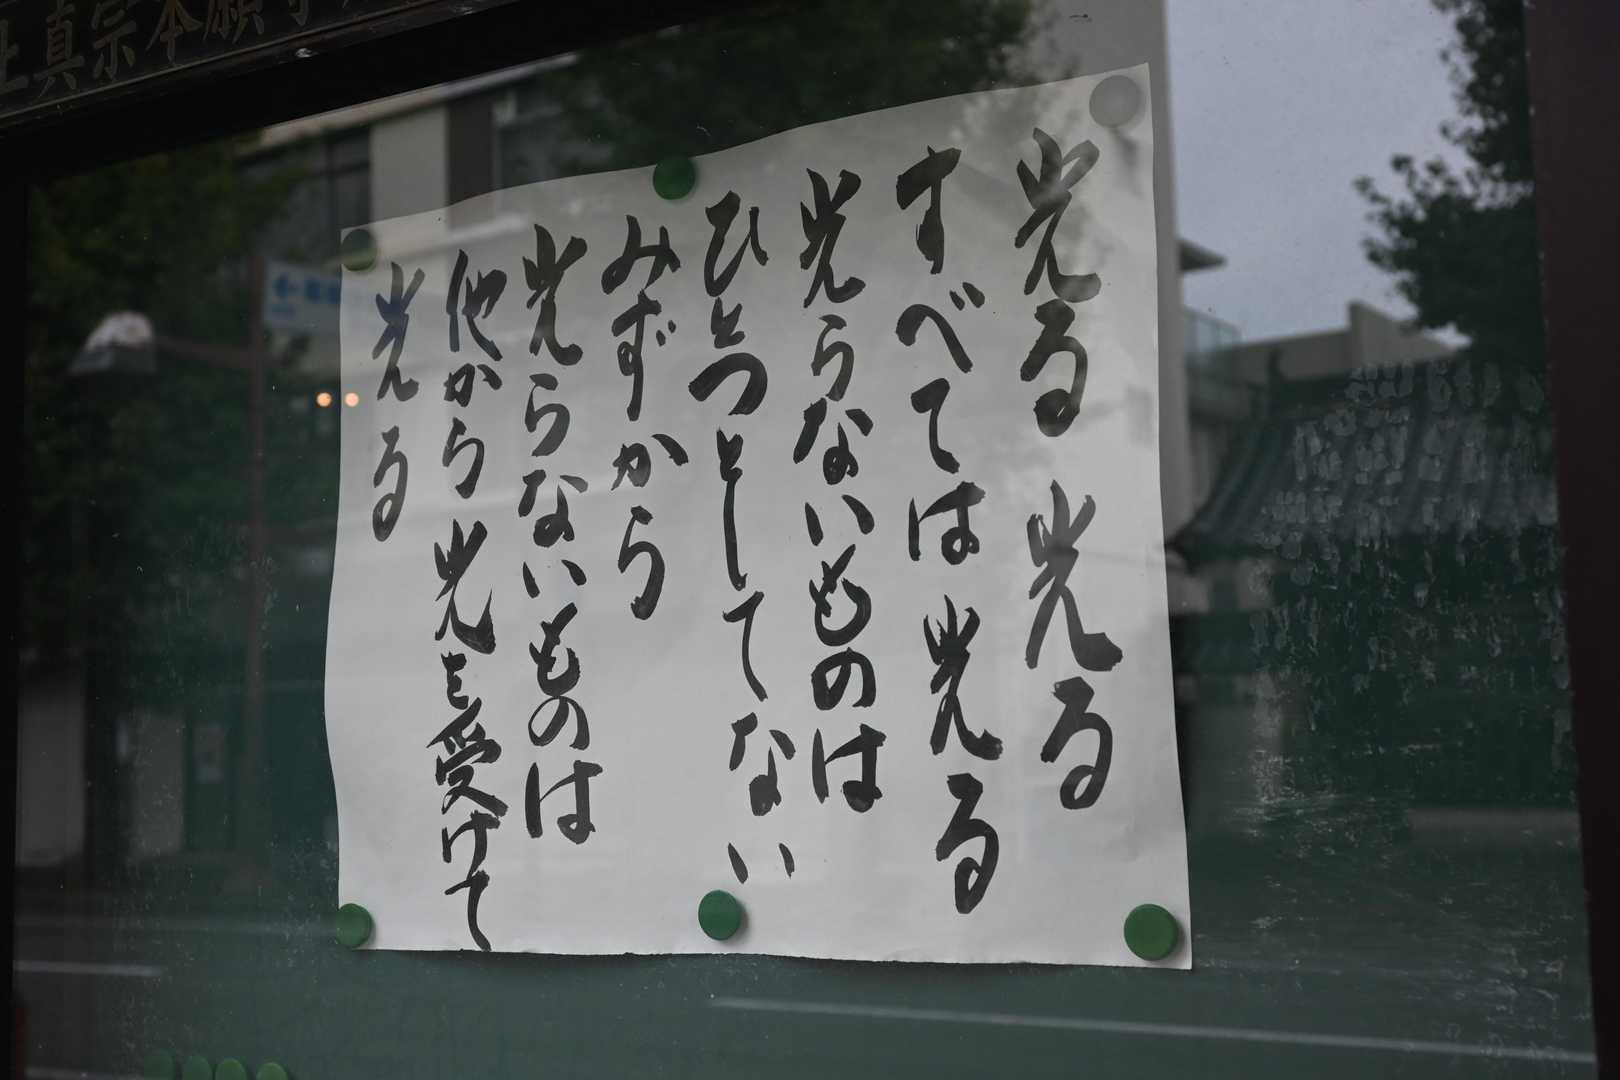 真宗本願寺
光る 光る
すべては 光る
光らないものは
ひとつとしてない
みずから
光らないものは
他から 光を受けて
光る